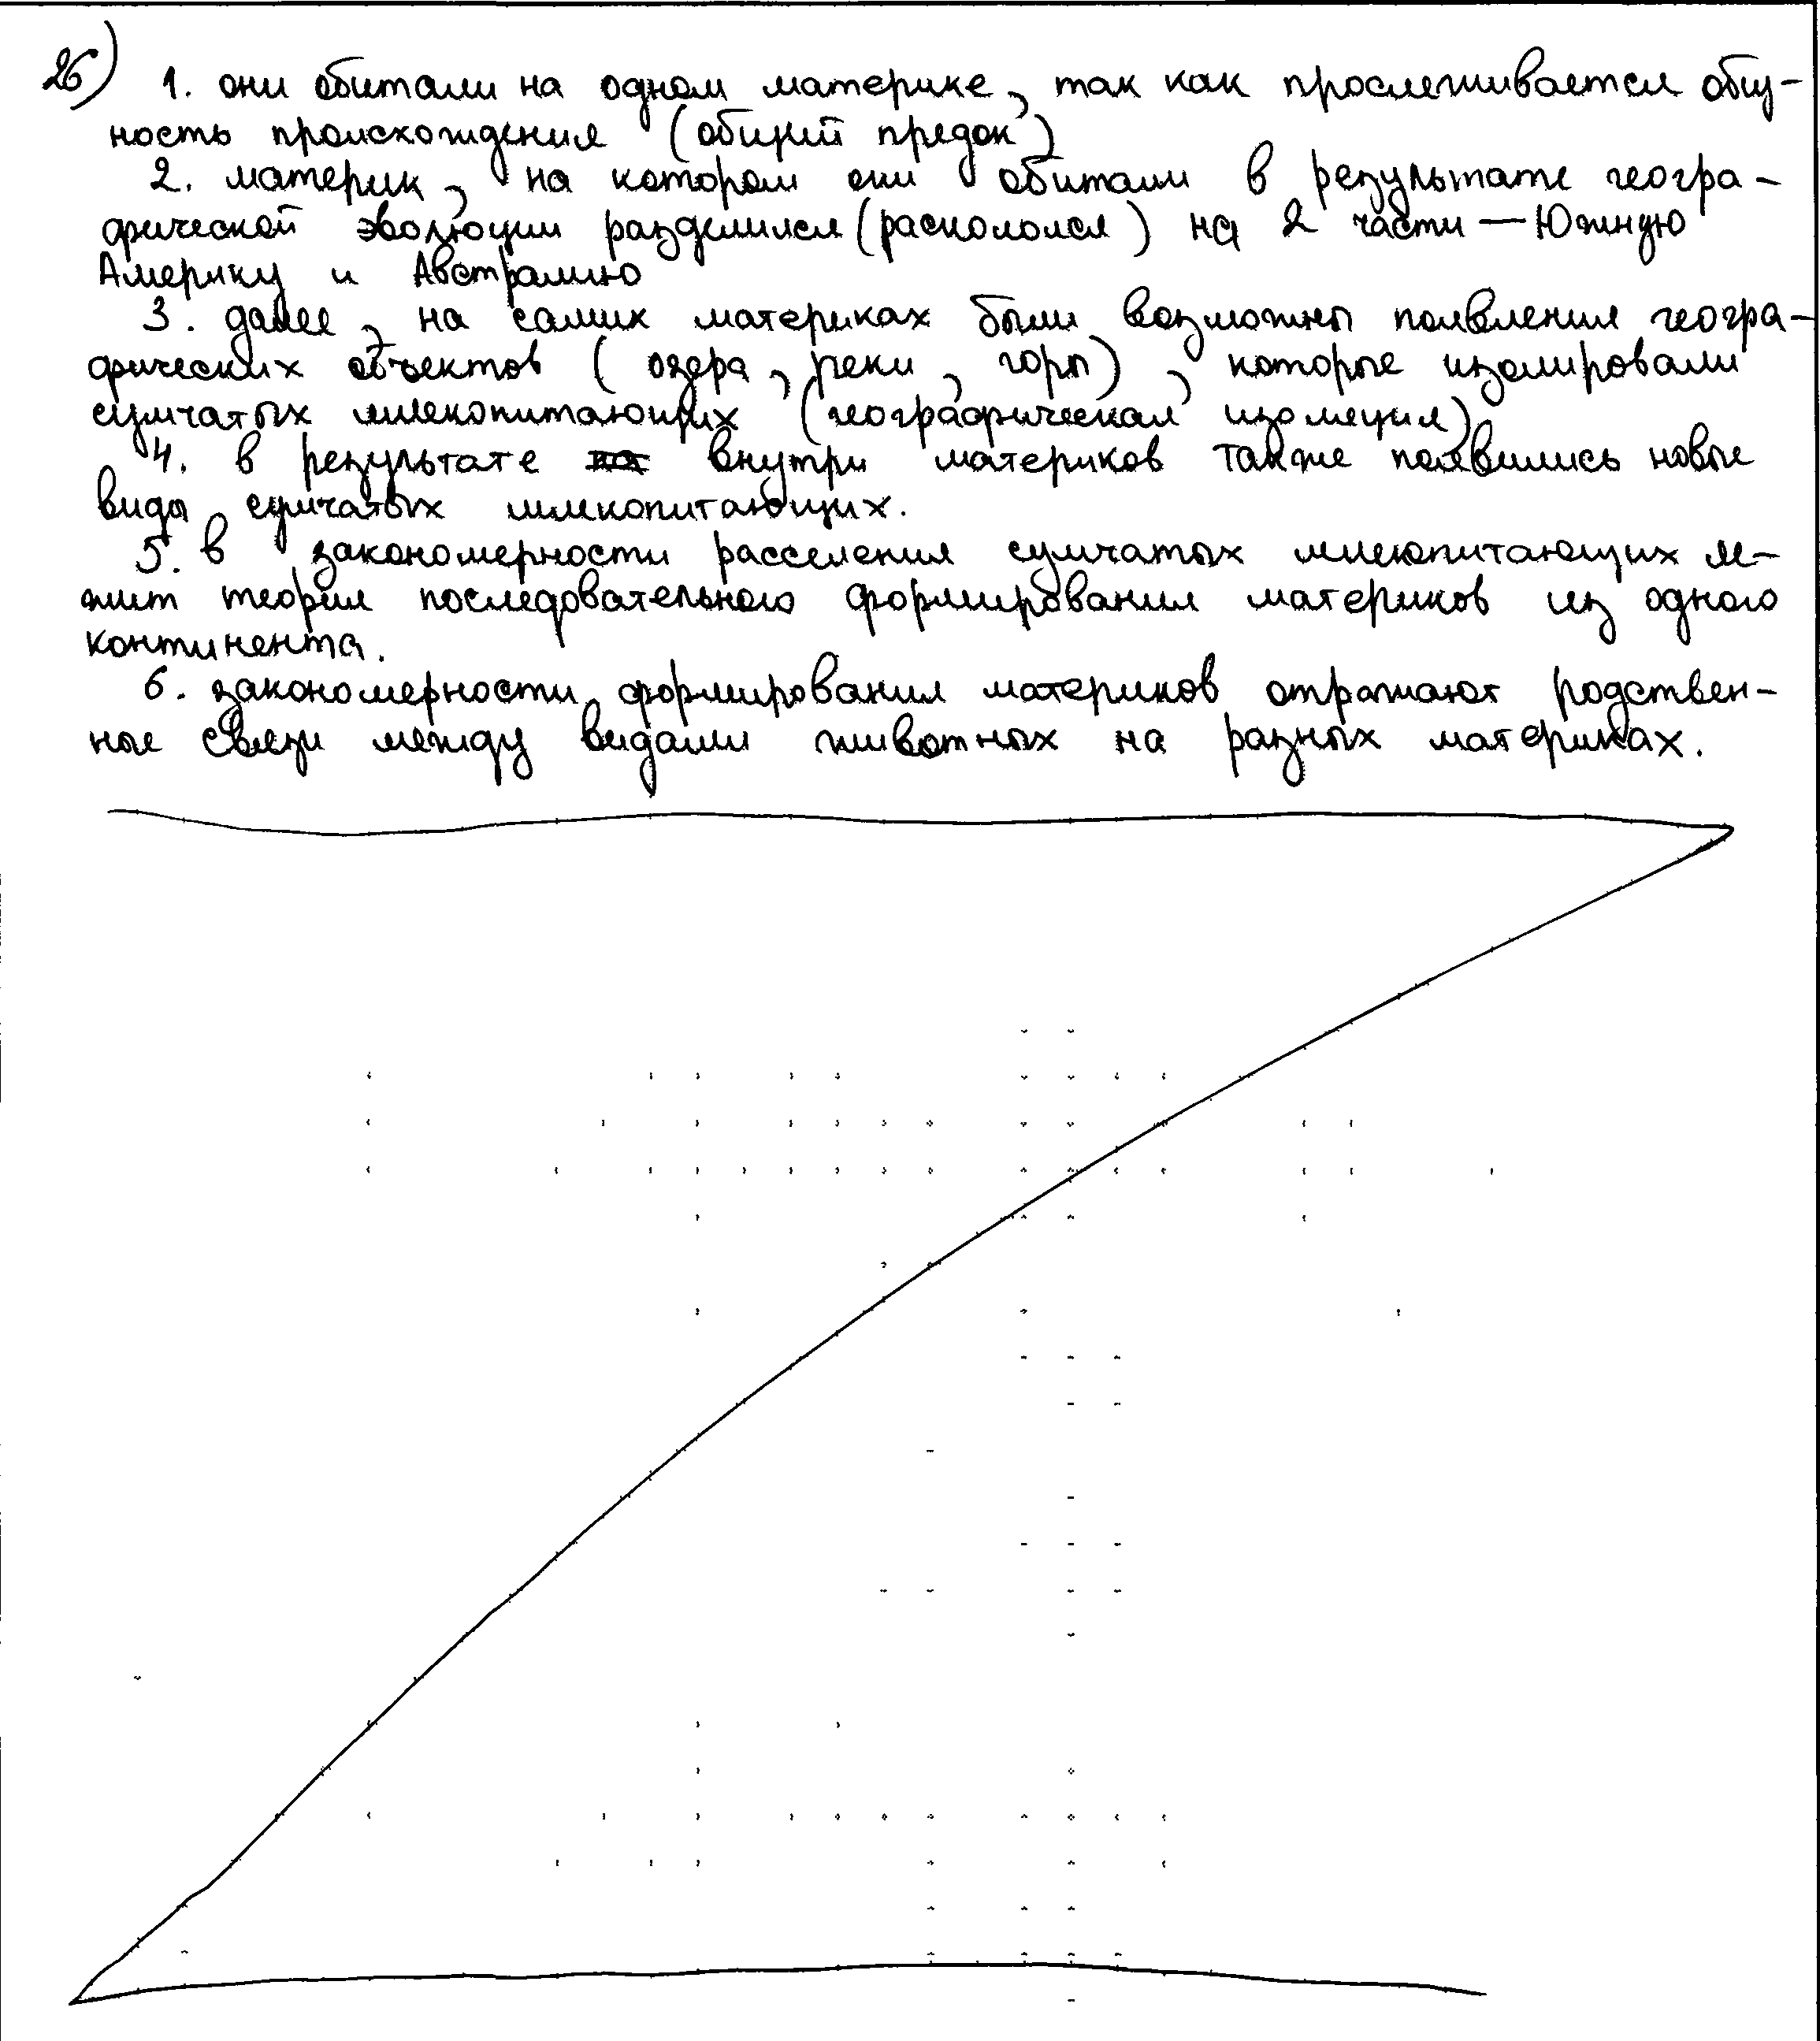 26) 1. они обитали на одном материке, так как прослеживается общ-
ность происхождения (общий предок)
2. материк, на котором они обитали в результате геогра-
фической эволюции разделился (раскололся) на 2 части — Южную
Америку и Австралию
3. далее, на самих материках были возможны появления геогра-
фических объектов (озера, реки, горы), которые изолировали
сумчатых млекопитающих (географическая изоляция)
4. в результате внутри материков также появились новые
виды сумчатых млекопитающих.
5. в закономерности расселения сумчатых млекопитающих ле-
жит теория последовательного формирования материков из одного
континента.
6. закономерности формирования материков отражают родствен-
ные связи между видами животных на разных материках.